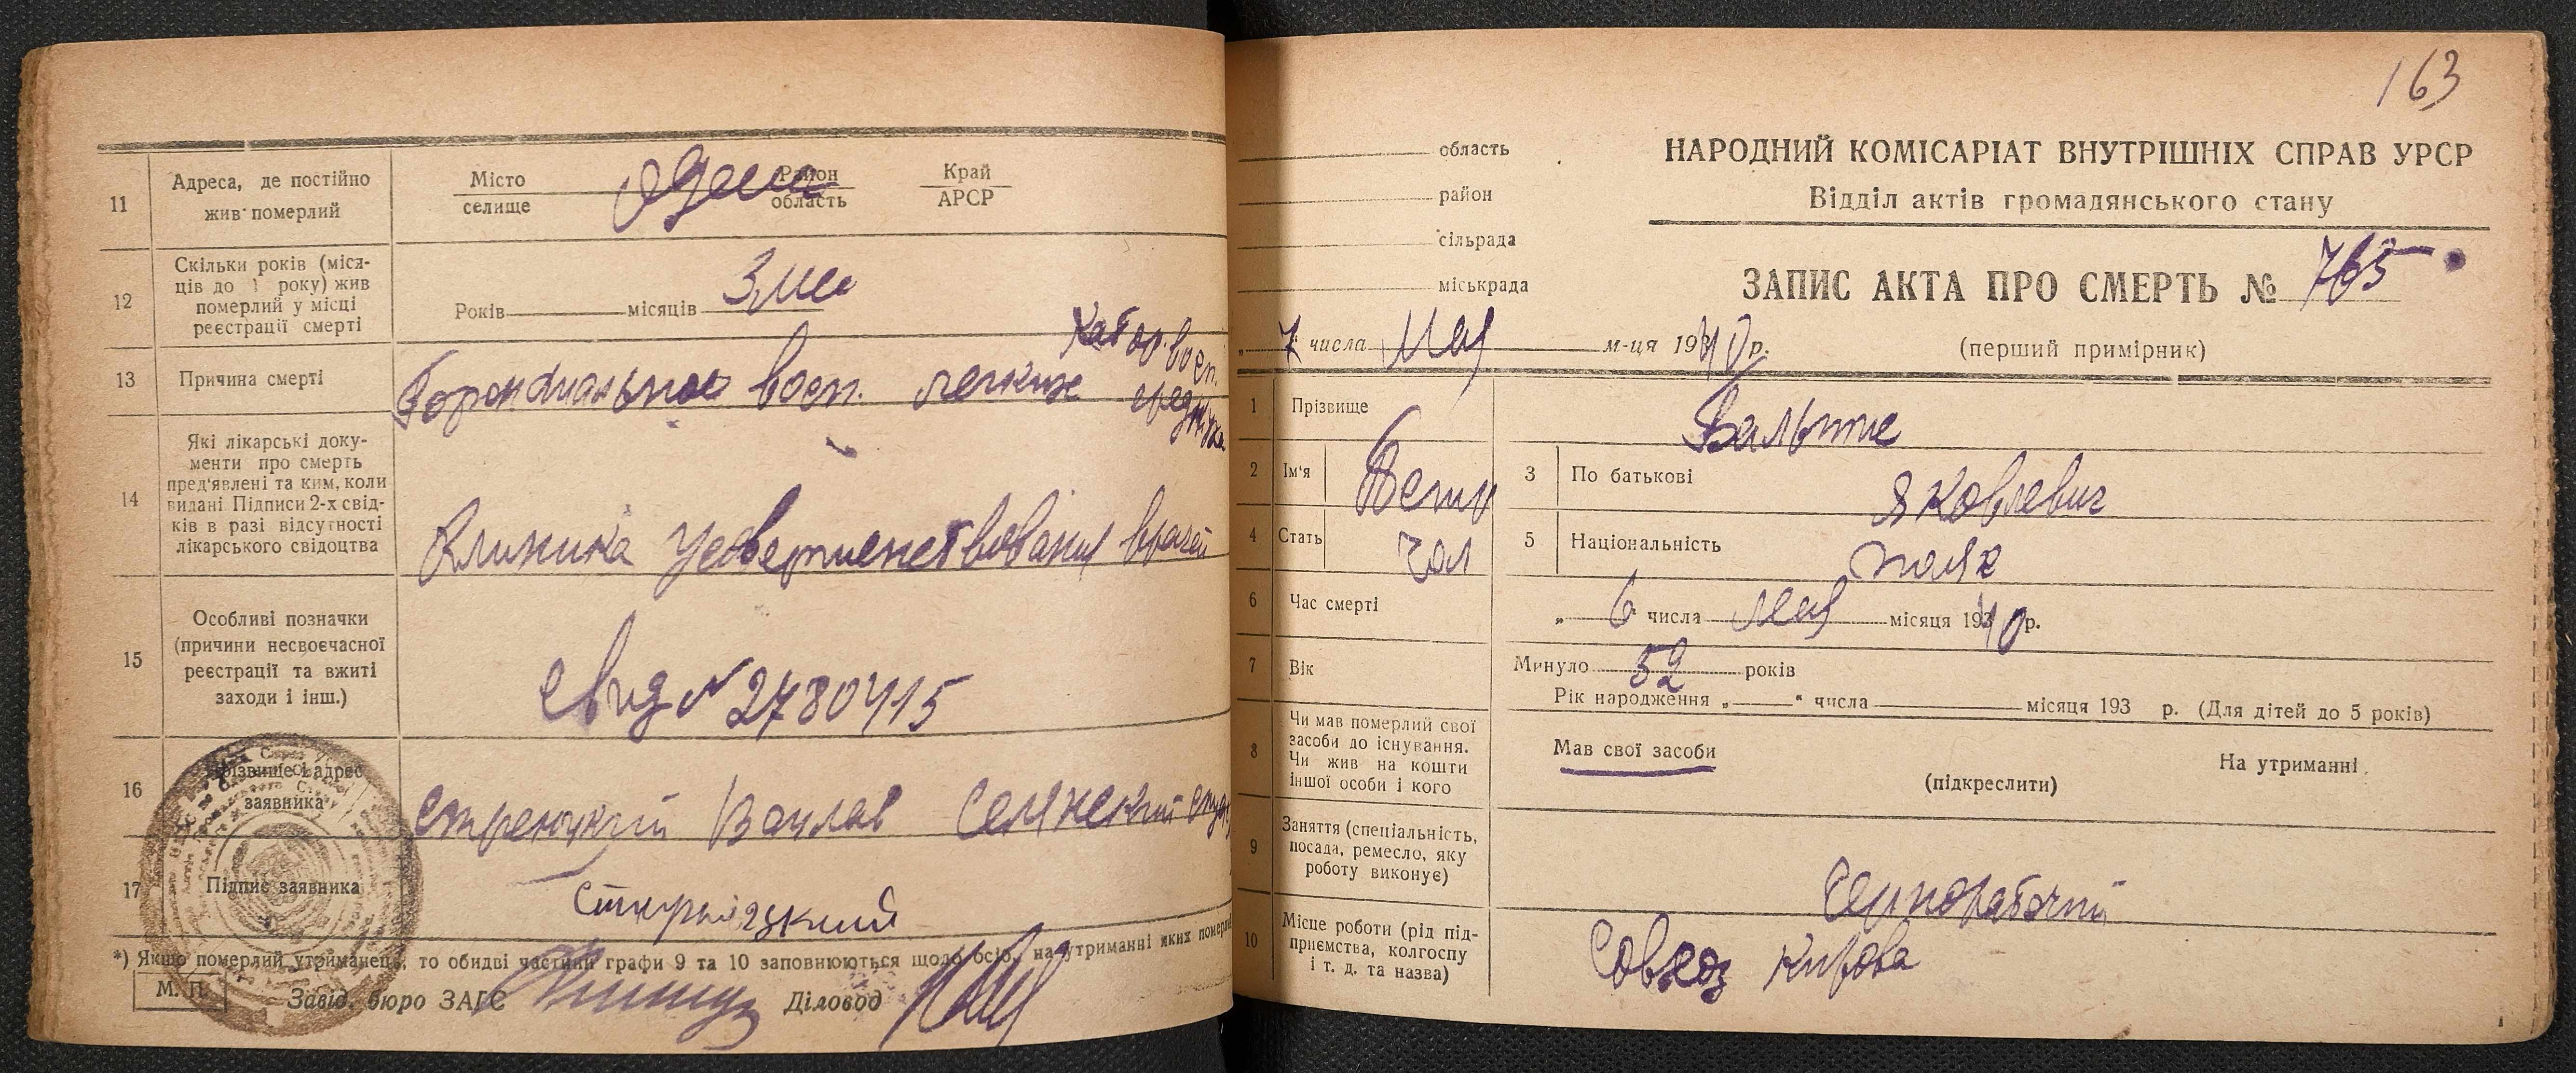 11
Адреса, де постійно
жив померлий
Місто
селище
Одесса
Район
область
Край
АРСР
12
Скільки років (міся-
ців до 1 року) жив
померлий у місці
реєстрації смерті
Років
місяців
3 мес
13
Причина смерті
восп. легких
14
Які лікарські доку-
менти про смерть
пред'явлені та ким, коли
видані Підписи 2-х свід-
ків в разі відсутності
лікарського свідоцтва
Клиника Усовершенствования врачей
15
Особливі позначки
(причини несвоєчасної
реєстрації та вжиті
заходи і інш.)
Свид № 2780415
16
Прізвище і адрес
заявника
Вацлав
17
Підпис заявника
*) Якщо померлий утриманець, то обидві частини графи 9 та 10 заповнюються щодо осіб, на утриманні яких
М. П.
Завід. бюро ЗАГС
Діловод
163
область
район
сільрада
міськрада
НАРОДНИЙ КОМІСАРІАТ ВНУТРІШНІХ СПРАВ УРСР
Відділ актів громадянського стану
ЗАПИС АКТА ПРО СМЕРТЬ № 765
(перший примірник)
„ 7 " числа Мая м-ця 1940 р.
1
Прізвище
2
Ім'я
3
По батькові
Яковлевич
4
Стать
чол
5
Національність
поляк
6
Час смерті
„ 6 " числа мая місяця 1940 р.
7
Вік
Минуло 52 років
Рік народження „ " числа місяця 193 р. (Для дітей до 5 років)
8
Чи мав померлий свої
засоби до існування.
Чи жив на кошти
іншої особи і кого
Мав свої засоби
(підкреслити)
На утриманні
9
Заняття (спеціальність,
посада, ремесло, яку
роботу виконує)
Чернорабочий
10
Місце роботи (рід під-
приємства, колгоспу
і т. д. та назва)
Совхоз Кирова